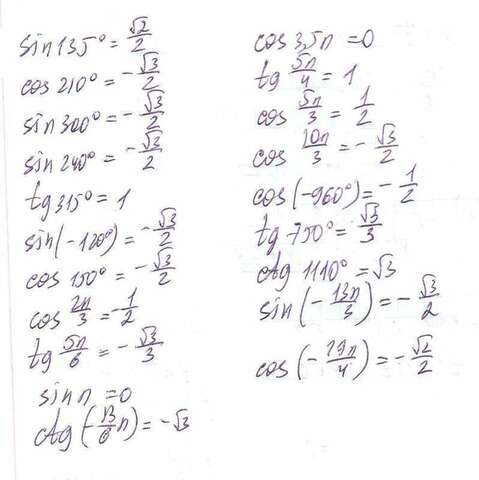 sin 135° = √2/2
cos 210° = -√3/2
sin 300° = -√3/2
sin 240° = -√3/2
tg 315° = 1
sin(-120°) = -√3/2
cos 150° = -√3/2
cos 2π/3 = -1/2
tg 5π/6 = -√3/3
sin π = 0
ctg(-13/6 π) = -√3
cos 3,5π = 0
tg 5π/4 = 1
cos 5π/3 = 1/2
cos 10π/3 = -√3/2
cos(-960°) = -1/2
tg 750° = √3/3
ctg 1110° = √3
sin(-13π/3) = -√3/2
cos(-π/4) = -√2/2